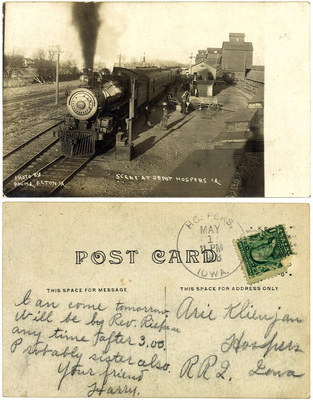 PHOTO BY
ALTON IA.
SCENE AT DEPOT HOSPERS IA.
POST CARD
THIS SPACE FOR MESSAGE
THIS SPACE FOR ADDRESS ONLY
HOSPERS,
MAY
1
PM
IOWA.
I can come tomorrow.
Will be by Rev.
any time after 3.00.
Probably sister also.
Your friend
Harry.
Arie Klienjan
Hospers
RR2. Iowa